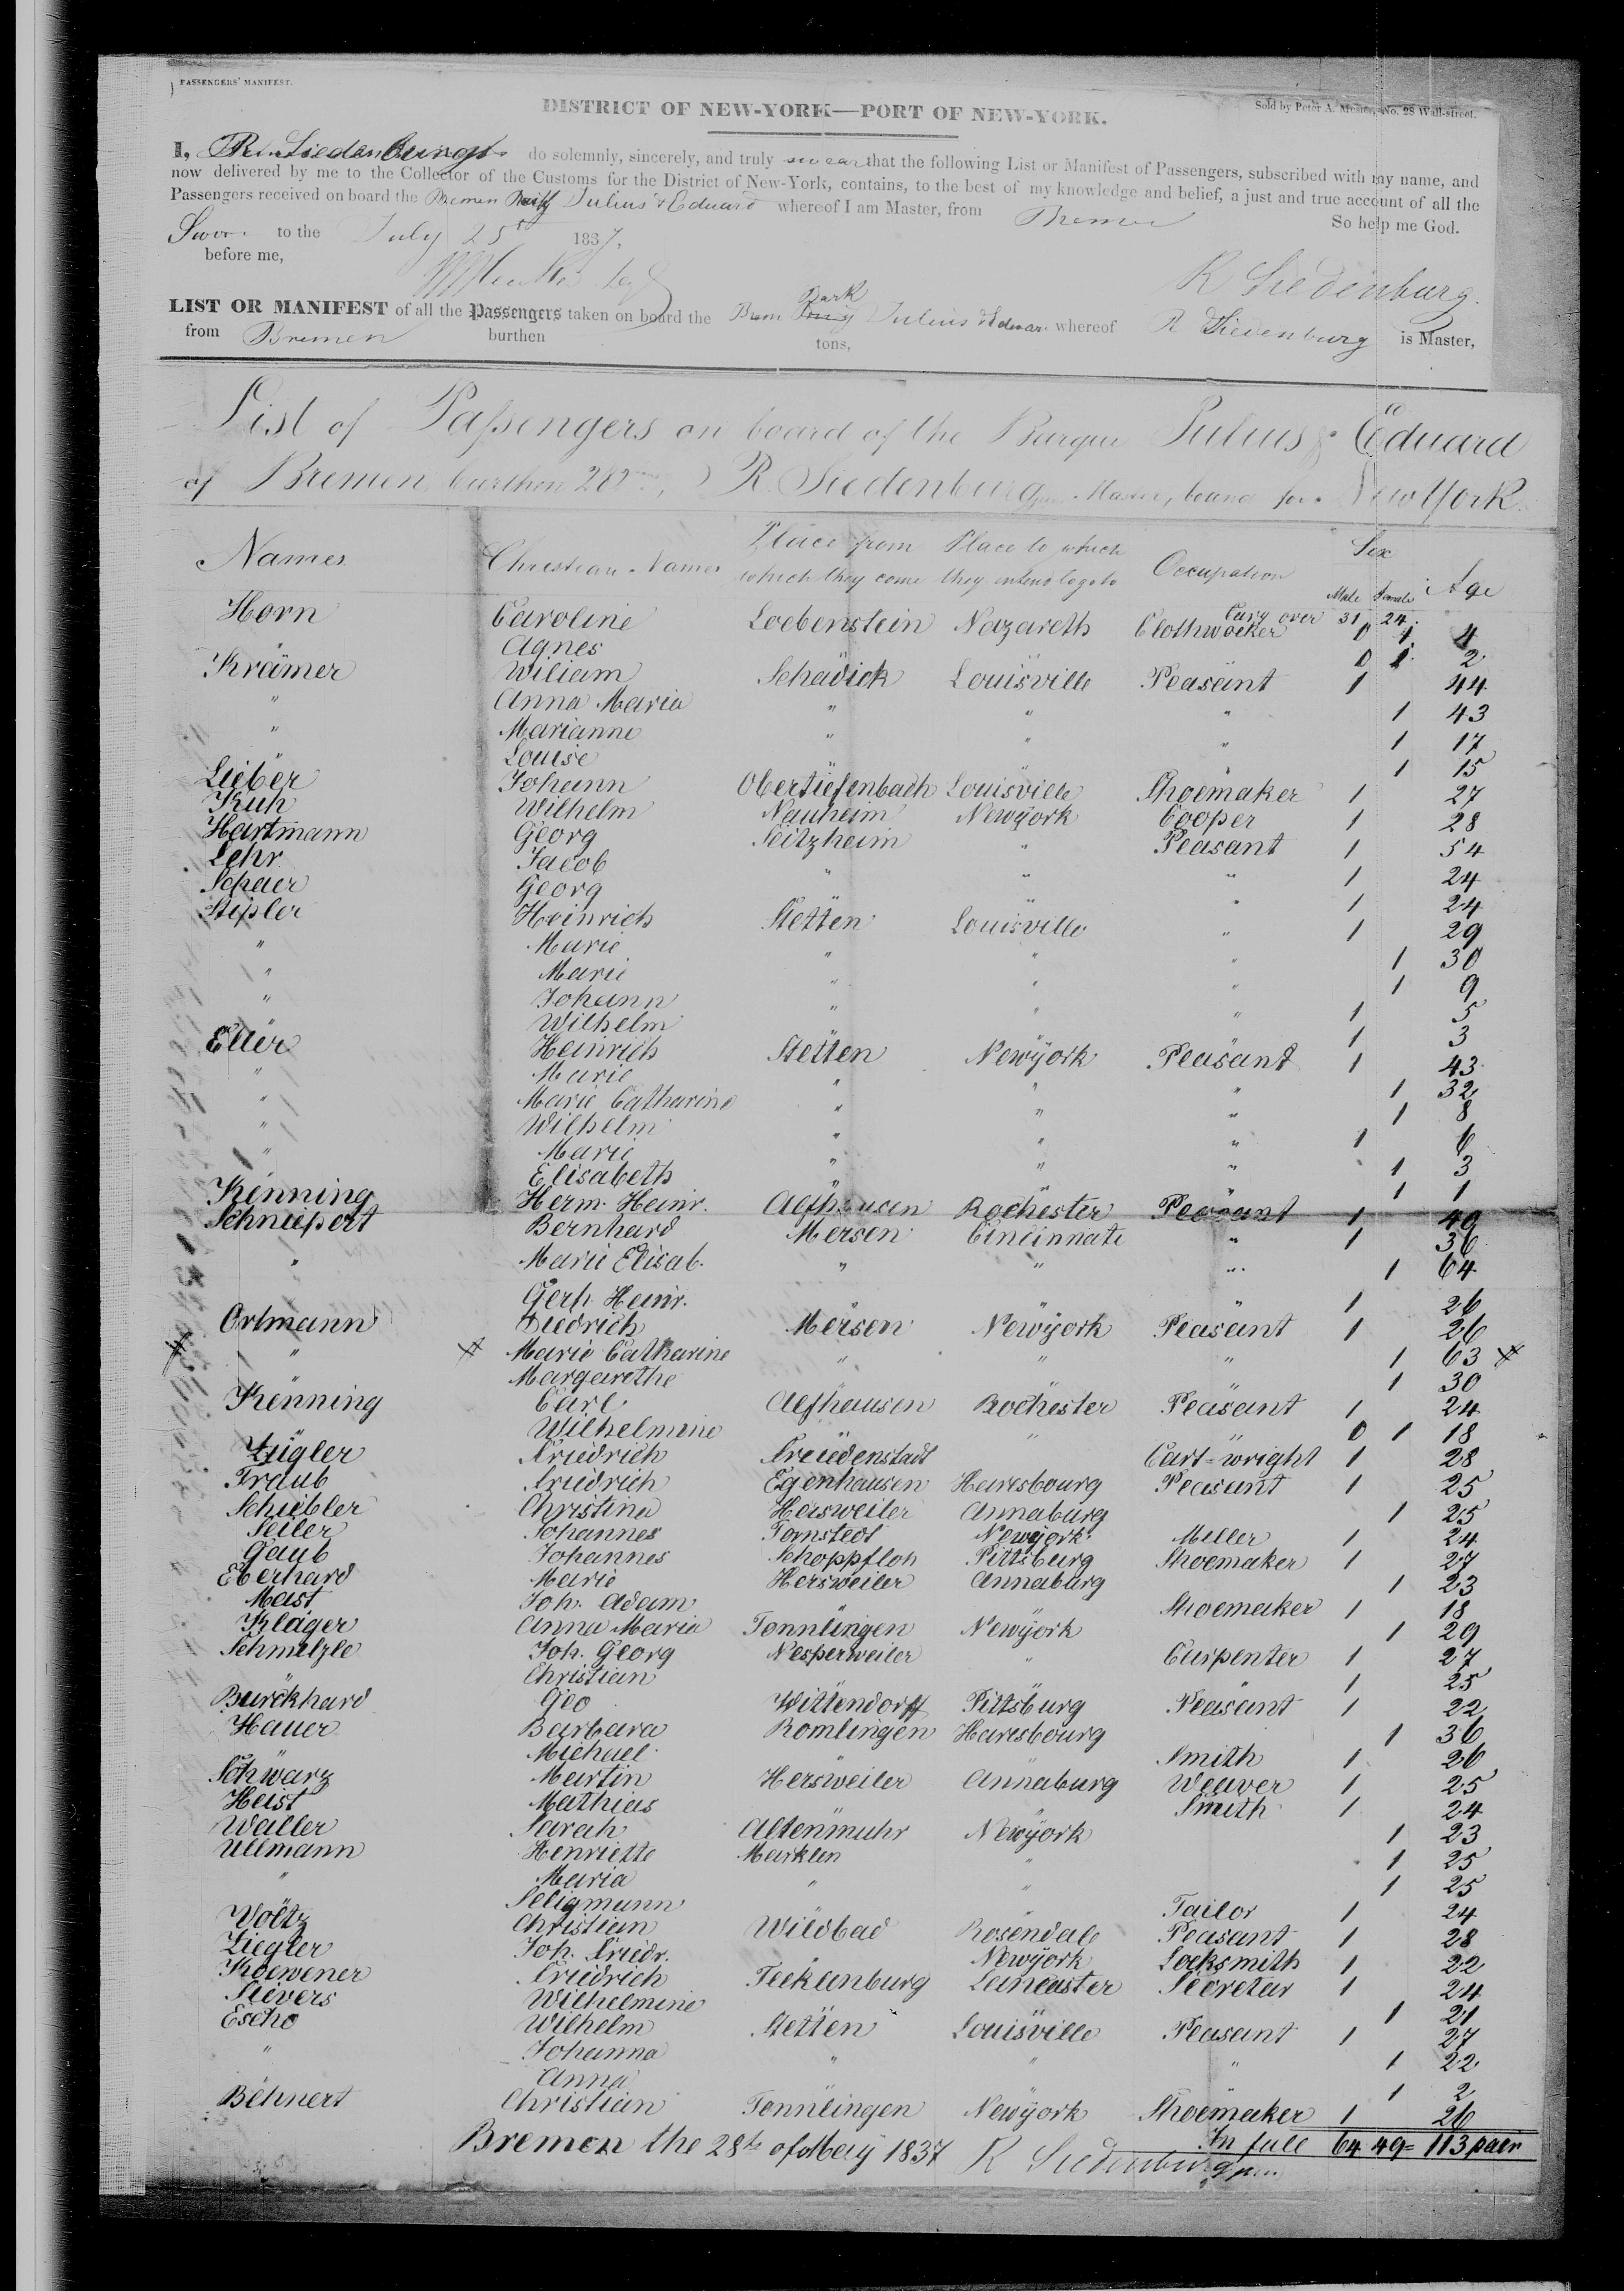 PASSENGERS' MANIFEST.
DISTRICT OF NEW-YORK—PORT OF NEW-YORK.
Sold by Peter A. Mesier, No. 28 Wall-street.
I, R. Siedenburg do solemnly, sincerely, and truly swear that the following List or Manifest of Passengers, subscribed with my name, and
now delivered by me to the Collector of the Customs for the District of New-York, contains, to the best of my knowledge and belief, a just and true account of all the
Passengers received on board the Bremen Julius & Eduard whereof I am Master, from Bremen
So help me God.
Sworn to the July 25 1837,
before me,
R Siedenburg.
LIST OR MANIFEST of all the Passengers taken on board the Brem Bark Julius & Eduar whereof R Siedenburg is Master,
from Bremen burthen tons,
List of Passengers on board of the Barque Julius & Eduard
of Bremen burthen 282, R. Siedenburg jun. Master, bound for New York.
Names Christian Names Place from which they come Place to which they intend to go to Occupation Sex Male Female Age
Cary over 31 24
Horn Caroline Loebenstein Nazareth Clothwoeker 0 1 4
Agnes 0 1 2
Krämer Wiliam Schadick Louisville Peasant 1 44
" Anna Maria " " " 1 43
" Marianne " " " 1 17
" Louise " " " 1 15
Lieber Johann Obertiefenbach Louisville Shoemaker 1 27
Kuh Wilhelm Nauheim Newyork Cooper 1 28
Hartmann Georg Seitzheim " Peasant 1 54
Lehr Jacob " " " 1 24
Schaer Georg " " " 1 24
Stipler Heinrich Stetten Louisville " 1 29
" Marie " " " 1 30
" Marie " " " 1 9
" Johann " " " 1 5
Wilhelm 1 3
Eller Heinrich Stetten Newyork Peasant 1 43
" Marie " " " 1 32
" Marie Catharine " " " 1 8
" Wilhelm " " " 1 6
" Marie " " " 1 3
Elisabeth " 1 1
Kenning Herm. Heinr. Alfhausen Rochester Peasant 1 49
Schniepert Bernhard Mersen Cincinnati " 1 36
" Marie Elisab. " " " 1 64
" Gerh. Heinr. " " " 1 26
Ortmann Diedrich Mersen Newyork Peasant 1 26
" Marie Catharine " " " 1 63
" Margarethe " " " 1 30
Kenning Carl Alfhausen Rochester Peasant 1 24
Wilhelmine " " 0 1 18
Zügler Friedrich Freudenstadt Cart=wright 1 28
Traub Friedrich Egenhausen Haresbourg Peasant 1 25
Schiebler Christina Hersweiler Annaburg 1 25
Seiler Johannes Tornstedt Newyork Meller 1 24
Gaub Johannes Schoppfloh Pittsburg Shoemaker 1 27
Eberhard Marie Hersweiler Annaburg 1 23
Mast Joh. Adam Shoemaker 1 18
Kläger Anna Maria Tonnlingen Newyork 1 29
Schmelzle Joh. Georg Nesperweiler " Carpenter 1 27
" Christian 1 25
Burckhard Geo Wittendorff Pittsburg Peasant 1 22
Hauer Barbara Romlingen Haresbourg 1 36
" Michael " " Smith 1 26
Schwarz Martin Hersweiler Annaburg Weaver 1 25
Heist Mathias " " Smith 1 24
Waller Sarah Altenmuhr Newyork 1 23
Ullmann Henriette Marklen " 1 25
" Maria " " 1 25
Seligmann Tailor 1 24
Woltz Christian Wildbad Rosendale Peasant 1 28
Ziegler Joh. Friedr. Newyork Locksmith 1 22
Koewener Friedrich Tecklenburg Lancaster Secretar 1 24
Sievers Wilhelmine 1 21
Escho Wilhelm Stetten Louisville Peasant 1 27
" Johanna " " " 1 22
Anna 1 2
Behnert Christian Tonnlingen Newyork Shoemaker 1 26
In full 64 49= 113
Bremen the 28th of May 1837 R Siedenburg jun.